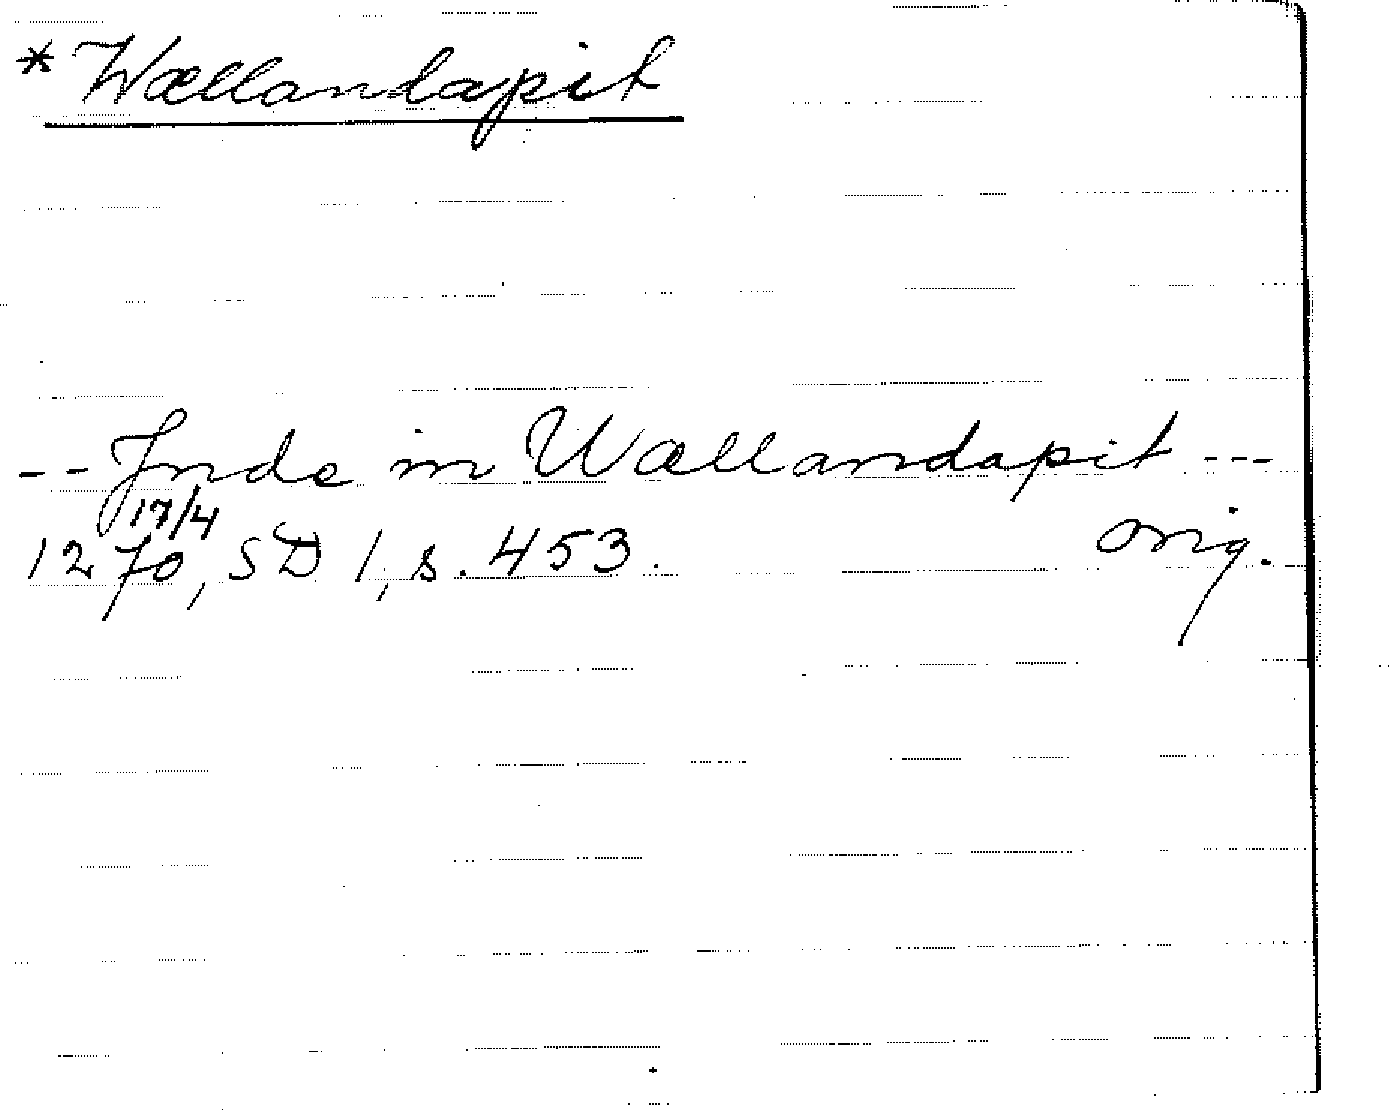 * Wællandapit
-- Inde in Wællandapit ---
17/4
1270, SD 1, s. 453. orig.